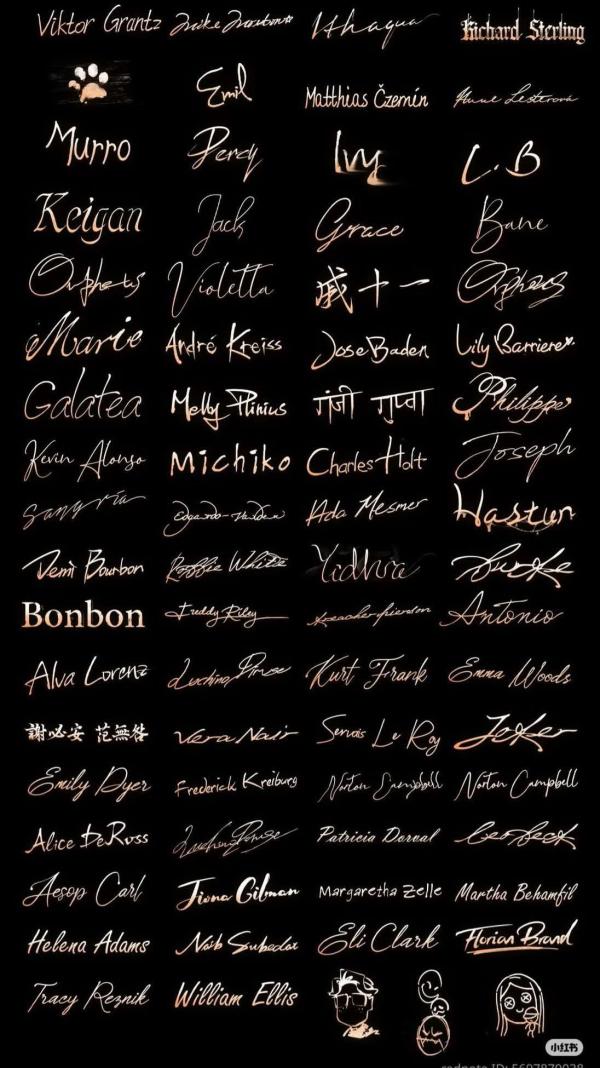 Viktor Grantz Ithaqua Richard Sterling
Emil Matthias Czernín Anne Lesterová
Murro Percy Ivy L.B
Keigan Jack Grace Bane
Orpheus Violetta 戚十一 Orpheus
Marie André Kreiss Jose Baden Lily Barriere
Galatea Melly Plinius गंजी गुप्ता Philippe
Kevin Alonso Michiko Charles Holt Joseph
Sangria Edgardo-Valden Ada Mesmer Hastur
Demi Bourbon Robbie White Yidhra Burke
Bonbon Freddy Riley Antonio
Alva Lorenz Luchino Diruse Kurt Frank Emma Woods
謝必安 范無咎 Vera Nair Servais Le Roy Joker
Emily Dyer Frederick Kreiburg Norton Campbell Norton Campbell
Alice DeRoss Luchino Diruse Patricia Dorval Leo Beck
Aesop Carl Fiona Gilman Margaretha Zelle Martha Behamfil
Helena Adams Naib Subedar Eli Clark Florian Brand
Tracy Reznik William Ellis
小红书